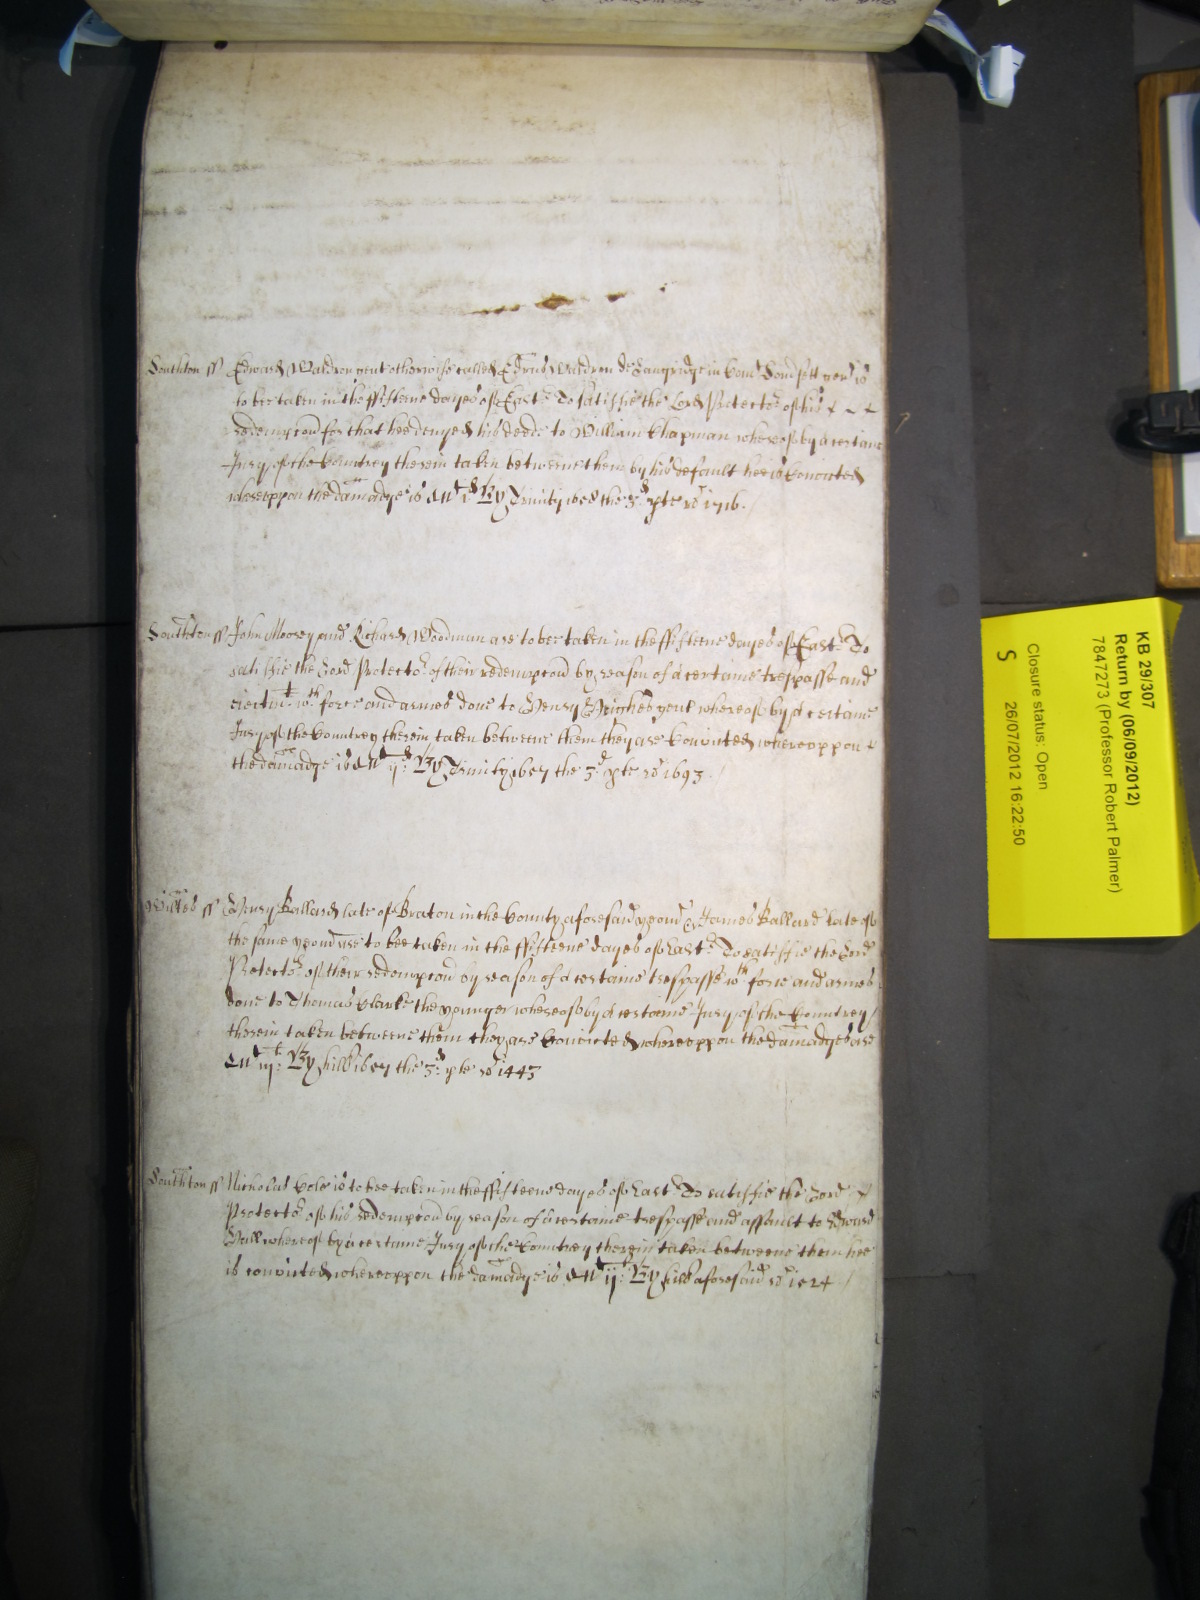 Southton ss Edward Waldron gent otherwise called Edrus Waldron de Langridge in Com Somsett gen is
to bee taken in the ffifteene dayes of East To satisfie the Lord Protector of his
redempcon for that hee denyed his deede to William Chapman whereof by a certaine
Jury of the Countrey therein taken betweene them by his default hee is Convicted
whereuppon the damadge is By Trinity the 3d pte ro 1716.
Southton ss John Moorey and Richard Woodman are to bee taken in the ffifteene dayes of East To
satisfie the Lord Protector of their redempcon by reason of a certaine trespasse and
eiectmt wth force and armes done to Henry gent whereof by a certaine
Jury of the Countrey therein taken betweene them they are Convicted whereuppon
the damadge is By Trinity 1657 the 3d pte ro 1693.
Wiltes ss Henry Ballard late of Braton in the County aforesaid yeom James Ballard late of
the same yeom are to bee taken in the ffifteene dayes of East To satisfie the Lord
Protector of their redempcon by reason of a certaine trespasse wth force and armes
done to Thomas Clarke the younger whereof by a certaine Jury of the Countrey
therein taken betweene them they are Convicted whereuppon the damadges are
iij By Hill 1657 the 3d pte ro 1443
Southton ss Nicholas Cole is to bee taken in the ffifteene dayes of East To satisfie the Lord
Protector of his redempcon by reason of a certaine trespasse and assault to Edward
Hall whereof by a certaine Jury of the Countrey therein taken betweene them hee
is convicted whereuppon the damadge is ij By Hill aforesaid ro
KB 29/307
Return by (06/09/2012)
7847273 (Professor Robert Palmer)
Closure status: Open
S 26/07/2012 16:22:50